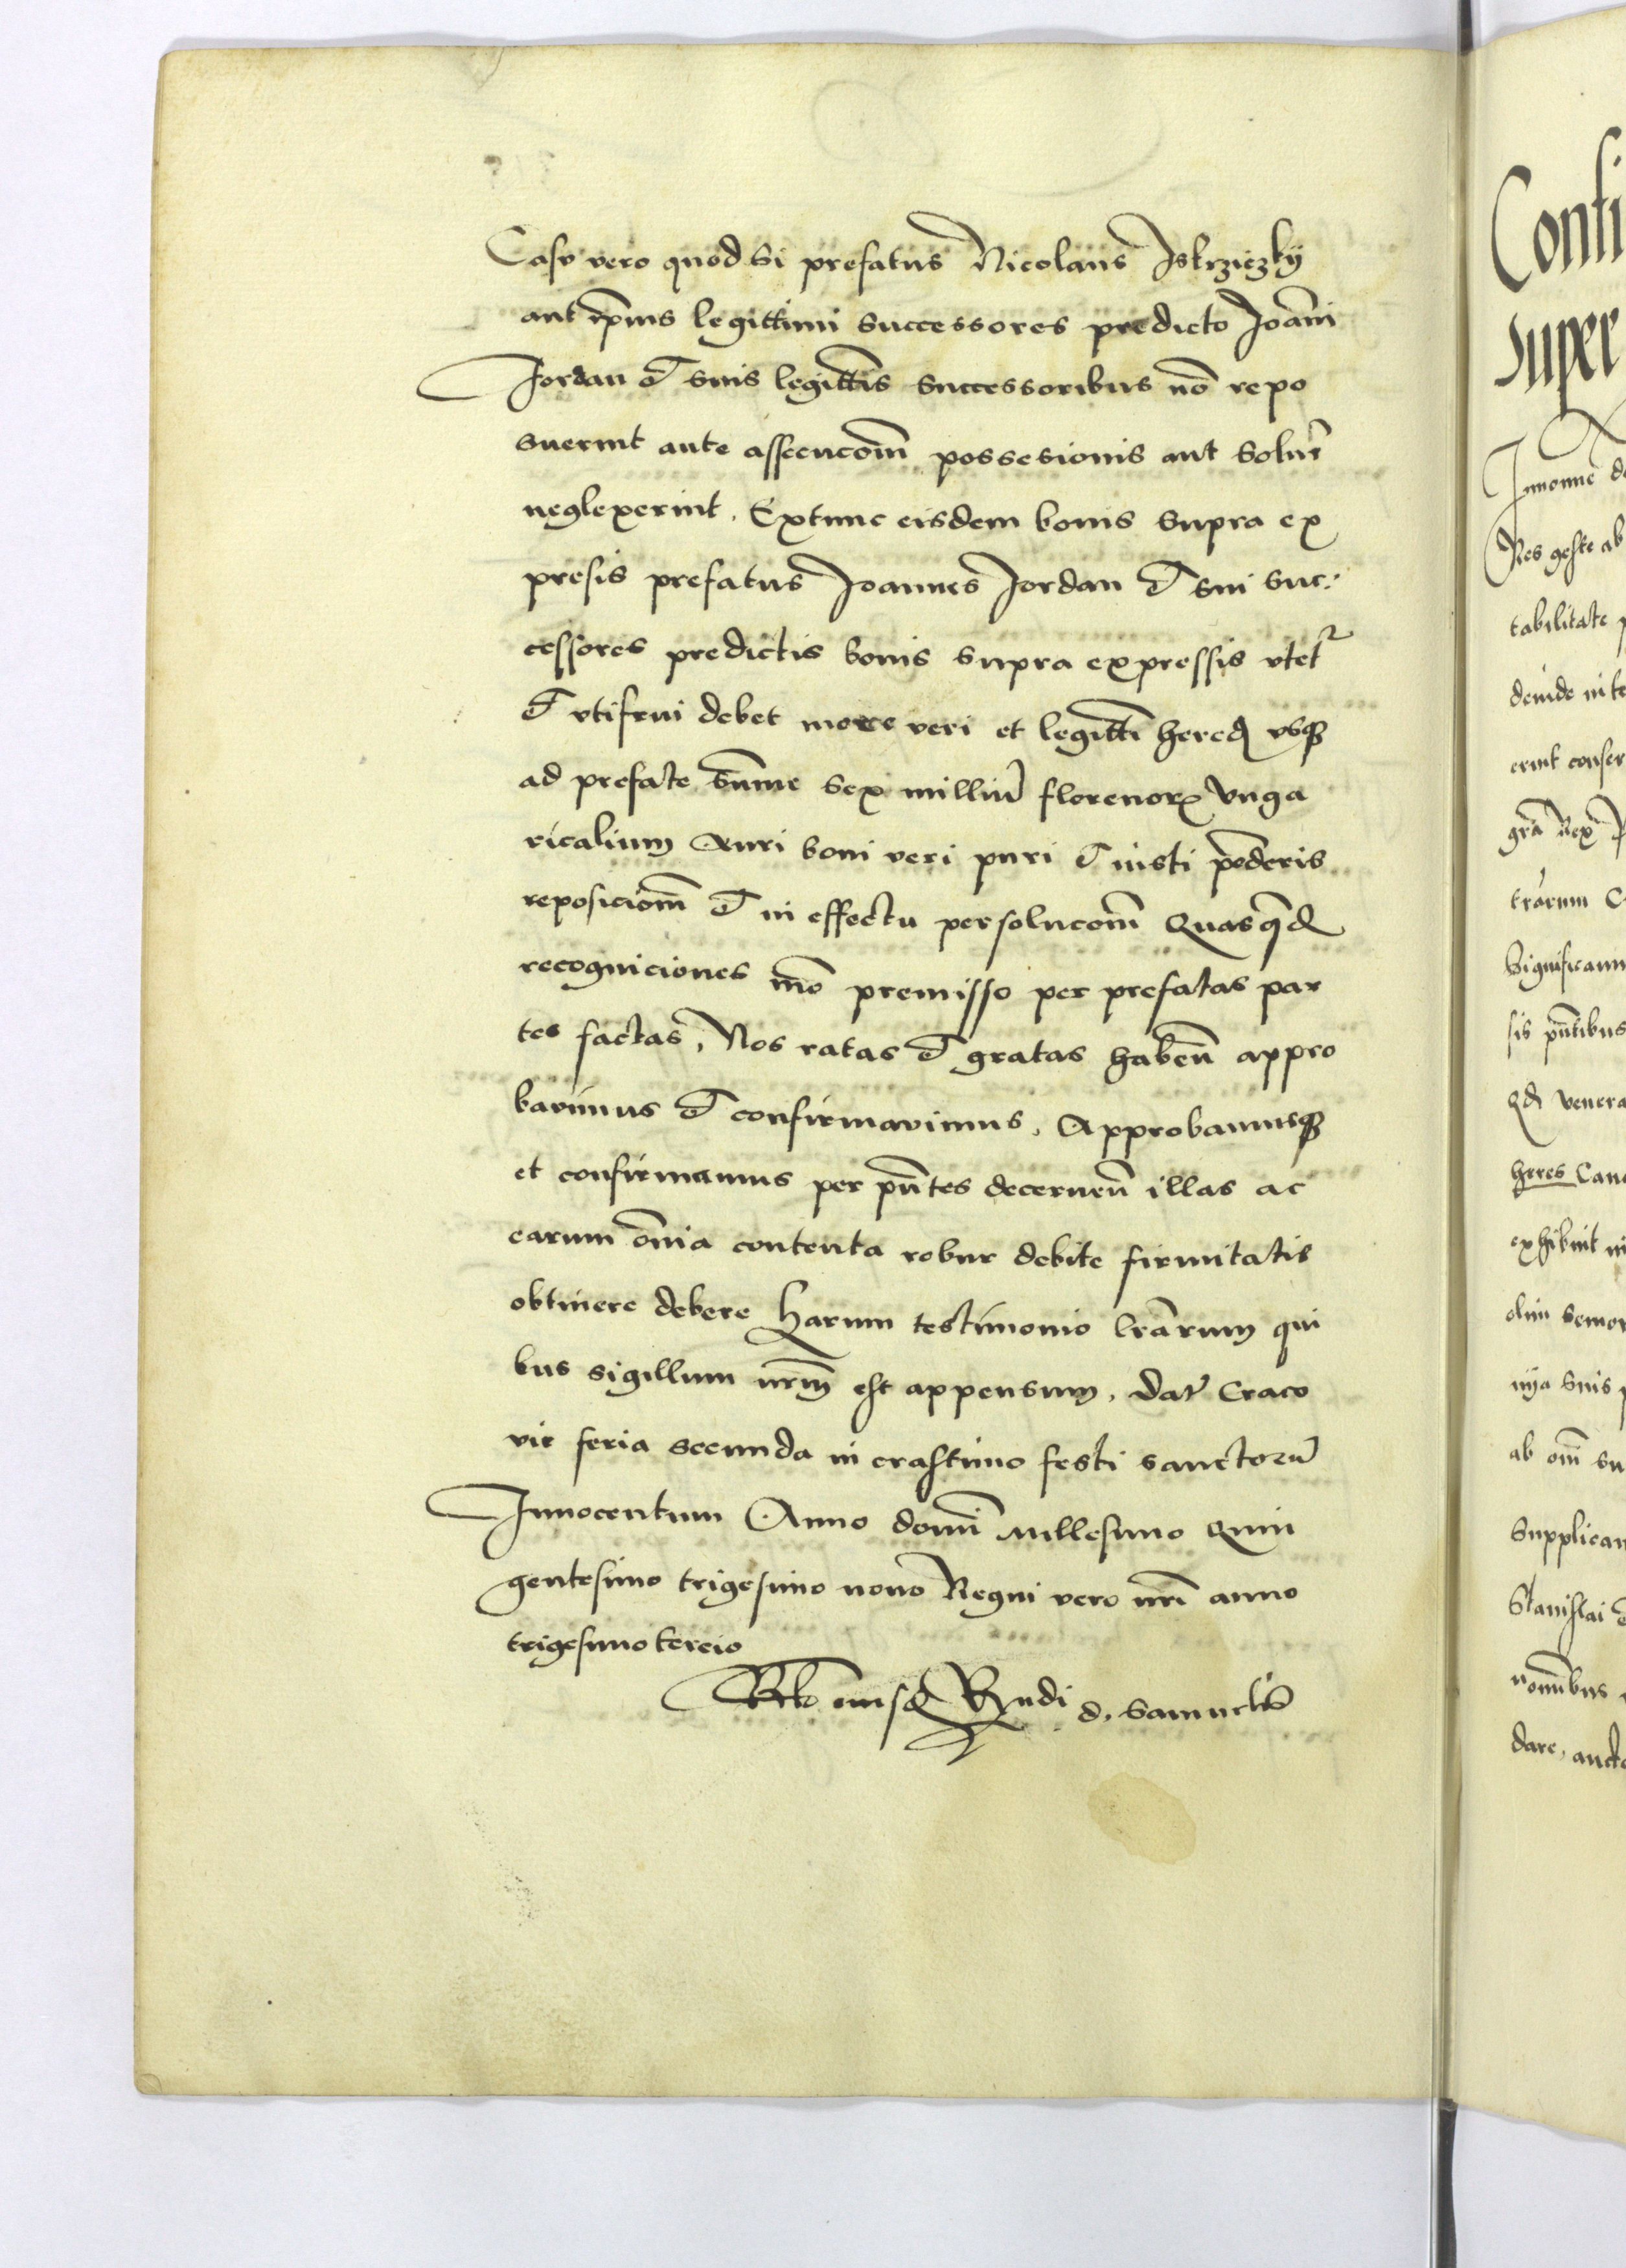 Casu vero quod si prefatus Nicolaus Iskrziczky
aut ip̄ius legittimi successores predicto Joāni
Jordan et suis legitt̄is successoribus nō repo
suerint ante assecucōm̄ possesionis aut solue͂
neglexerint. Extunc eisdem bonis supra ex
presis prefatus Joannes Jordan et sui suc:
cessores predictis bonis supra expressis vtet͛
et vtifrui debet more veri et legitt̄i hered vsqꝫ
ad prefate sūme sex milliū florenorꝝ Vnga
ricalium Auri boni veri puri et iusti pōderis
reposiciōm̄ et in effectu persolucōm̄ Quasq̄d
recogniciones mō premisso per prefatas par
tes factas, Nos ratas et gratas habeñ appro
bavimus et confirmavimus, Approbamusqꝫ
et confirmamus per pn̄tes decerneñ illas ac
earum om̄ia contenta robur debite firmitatis
obtinere debere Harum testimonio lr̄arum qui
bus sigillum nr̄m est appensum, Dat͛ Craco
vie feria secunda in crastino festi sanctorū
Innocentum Anno domī Millesimo Quin
gentesimo trigesimo nono Regni vero nr̄i anno
trigesimo tercio
Rlo eiusd R͛ndi d. Samuelis
Confi
super
In nomine do
Res geste ab
tabilitate p
deinde in te
erint conser
gr̄a Rex P
trarum C
Significam
sis pn̄tibus
Qd venera
heres Cano
exhibuit in
olim Semo
nya suis p
ab om̄i su
Supplican
Stanislai
nominibus
dare, aucto